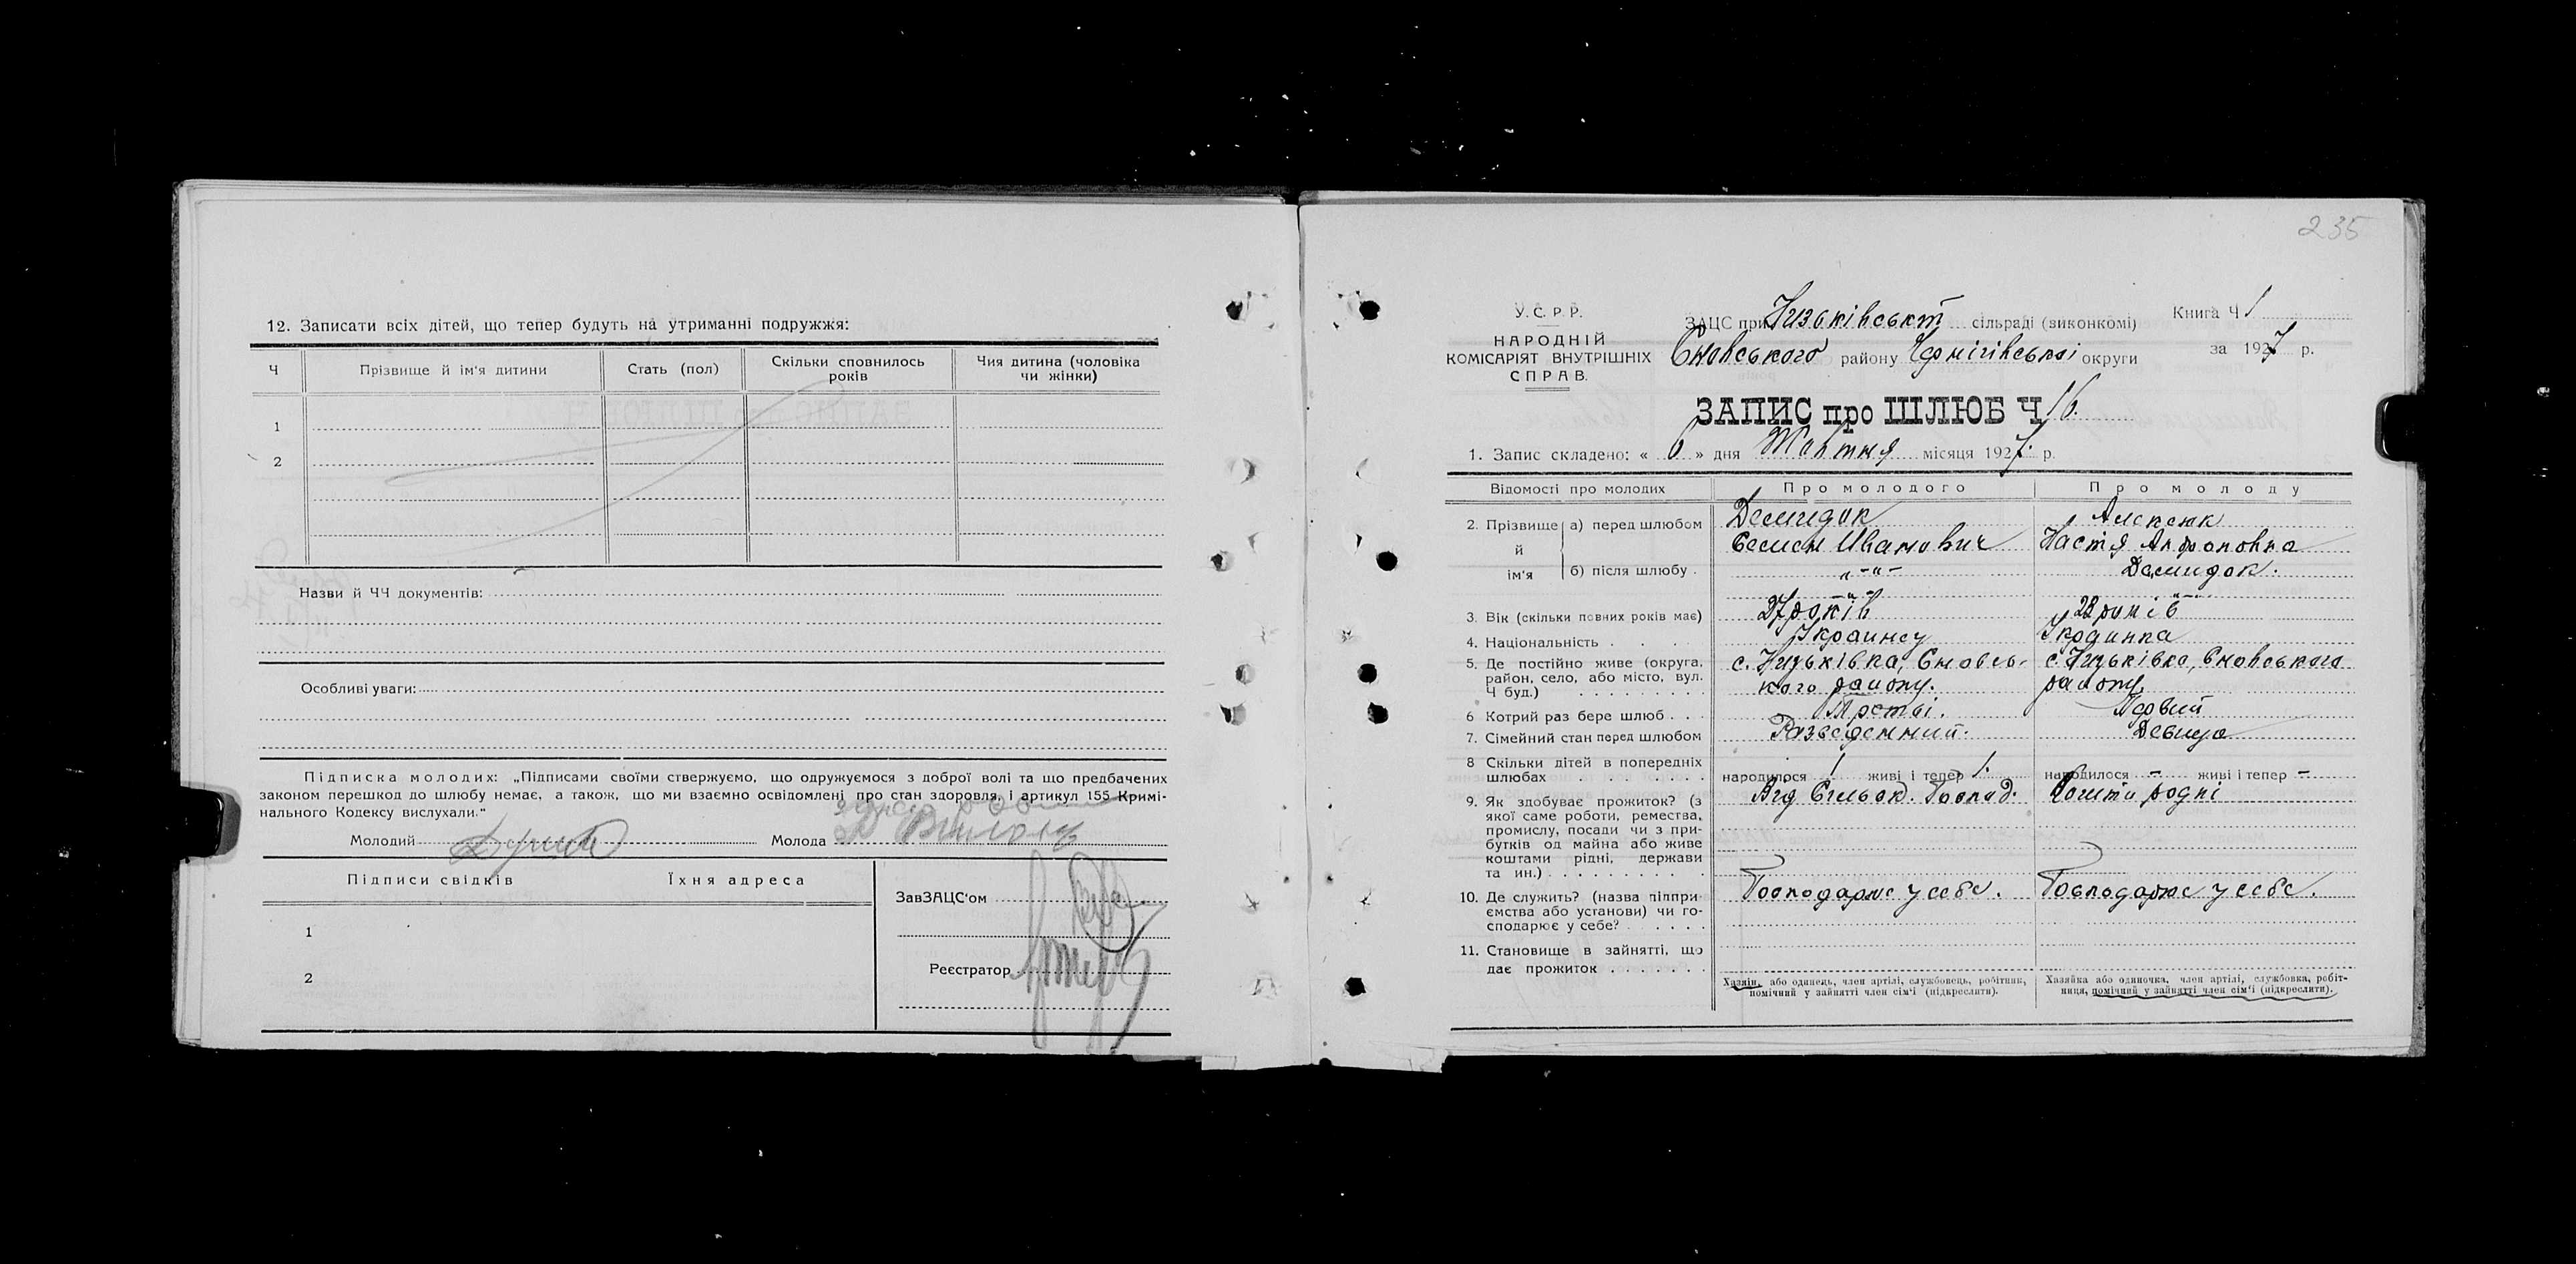 12. Записати всіх дітей, що тепер будуть на утриманні подружжя:
Ч Прізвище й ім'я дитини Стать (пол) Скільки сповнилось років Чия дитина (чоловіка чи жінки)
1
2
Назви й ЧЧ документів:
Особливі уваги:
Підписка молодих: „Підписами своїми ствержуємо, що одружуємося з доброї волі та що предбачених
законом перешкод до шлюбу немає, а також, що ми взаємно освідомлені про стан здоровля, і артикул 155 Кримі-
нального Кодексу вислухали."
Молодий Молода
Підписи свідків Їхня адреса
1
2
ЗавЗАЦС'ом
Реєстратор
235
У.С.Р.Р.
НАРОДНІЙ
КОМІСАРІЯТ ВНУТРІШНІХ
СПРАВ.
ЗАЦС при Низьківськт сільраді (виконкомі)
Сновського району Чернігівської округи
Книга Ч 1
за 1927 р.
ЗАПИС про ШЛЮБ Ч 16.
1. Запис складено: « 6 » дня Жовтня місяця 1927. р.
Відомості про молодих Про молодого Про молоду
2. Прізвище й ім'я а) перед шлюбом Демидок Алексеюк
Семен Иванович Настя
б) після шлюбу . „-„- Демидок.
3. Вік (скільки повних років має) 27 років 28 років
4. Національність . . . Украинец Украинка
5. Де постійно живе (округа, район, село, або місто, вул. Ч буд.) . . . . . . . . .
с. Низьківка, Сновсь- с. Низьківка, Сновського
кого району. району.
6 Котрий раз бере шлюб . . . Третьі. Первий
7. Сімейний стан перед шлюбом Разведенний. Девица
8 Скільки дітей в попередніх шлюбах . . . . . . . народилося 1 живі і тепер 1. народилося - живі і тепер -
9. Як здобуває прожиток? (з
якої саме роботи, ремества,
промислу, посади чи з при-
бутків од майна або живе
коштами рідні, держави
та ин.) . . . . . . . . .
Від Сільск. Господ. Кошти родні
10. Де служить? (назва підпри-
ємства або установи) чи го-
сподарює у себе? . . . . .
Господарює у себе. Господарює у себе.
11. Становище в зайнятті, що
дає прожиток . . . . . . .
Хазяїн, або одинець, член артілі, службовець, робітник,
помічний у зайнятті член сім'ї (підкреслити).
Хазяйка або одиночка, член артілі, службовка, робіт-
ниця, помічний у зайнятті член сім'ї (підкреслити).